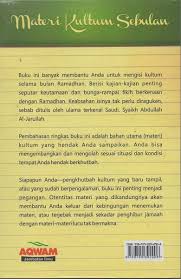 Materi Kultum Sebulan
Buku ini banyak membantu Anda untuk mengisi kultum
selama bulan Ramadhan. Berisi kajian-kajian penting
seputar keutamaan dan bunga-rampai fikih berkenaan
dengan Ramadhan. Keabsahan isinya tak perlu diragukan,
sebab ditulis oleh ulama terkenal Saudi, Syaikh Abdullah
Al-Jarullah.
Pembahasan ringkas buku ini adalah bahan utama (materi)
kultum yang hendak Anda sampaikan. Anda bisa
mengembangkan dan mengolah sesuai situasi dan kondisi
tempat Anda hendak berkhutbah.
Siapapun Anda—pengkhutbah kultum yang baru tampil,
atau yang sudah berpengalaman, buku ini penting menjadi
pegangan. Otentitas materi yang dikandungnya akan
membantu Anda keluar dari kebingungan menemukan
materi, atau terjebak menjadi sekadar penghibur jamaah
dengan materi-materi lucu tak bermakna.
AQWAM